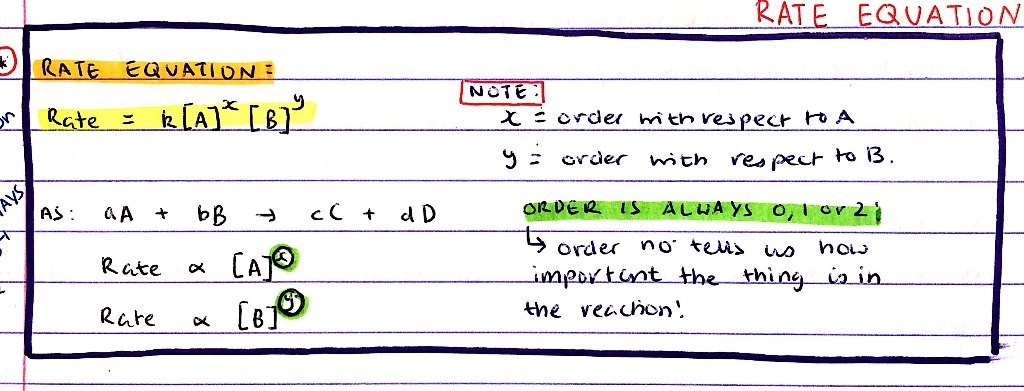 RATE EQUATION
RATE EQUATION:
Rate = k[A]^x [B]^y
NOTE:
x = order with respect to A
y = order with respect to B.
AS: aA + bB → cC + dD
Rate ∝ [A]^x
Rate ∝ [B]^y
ORDER IS ALWAYS 0, 1 or 2!
↳ order no. tells us how
important the thing is in
the reaction!